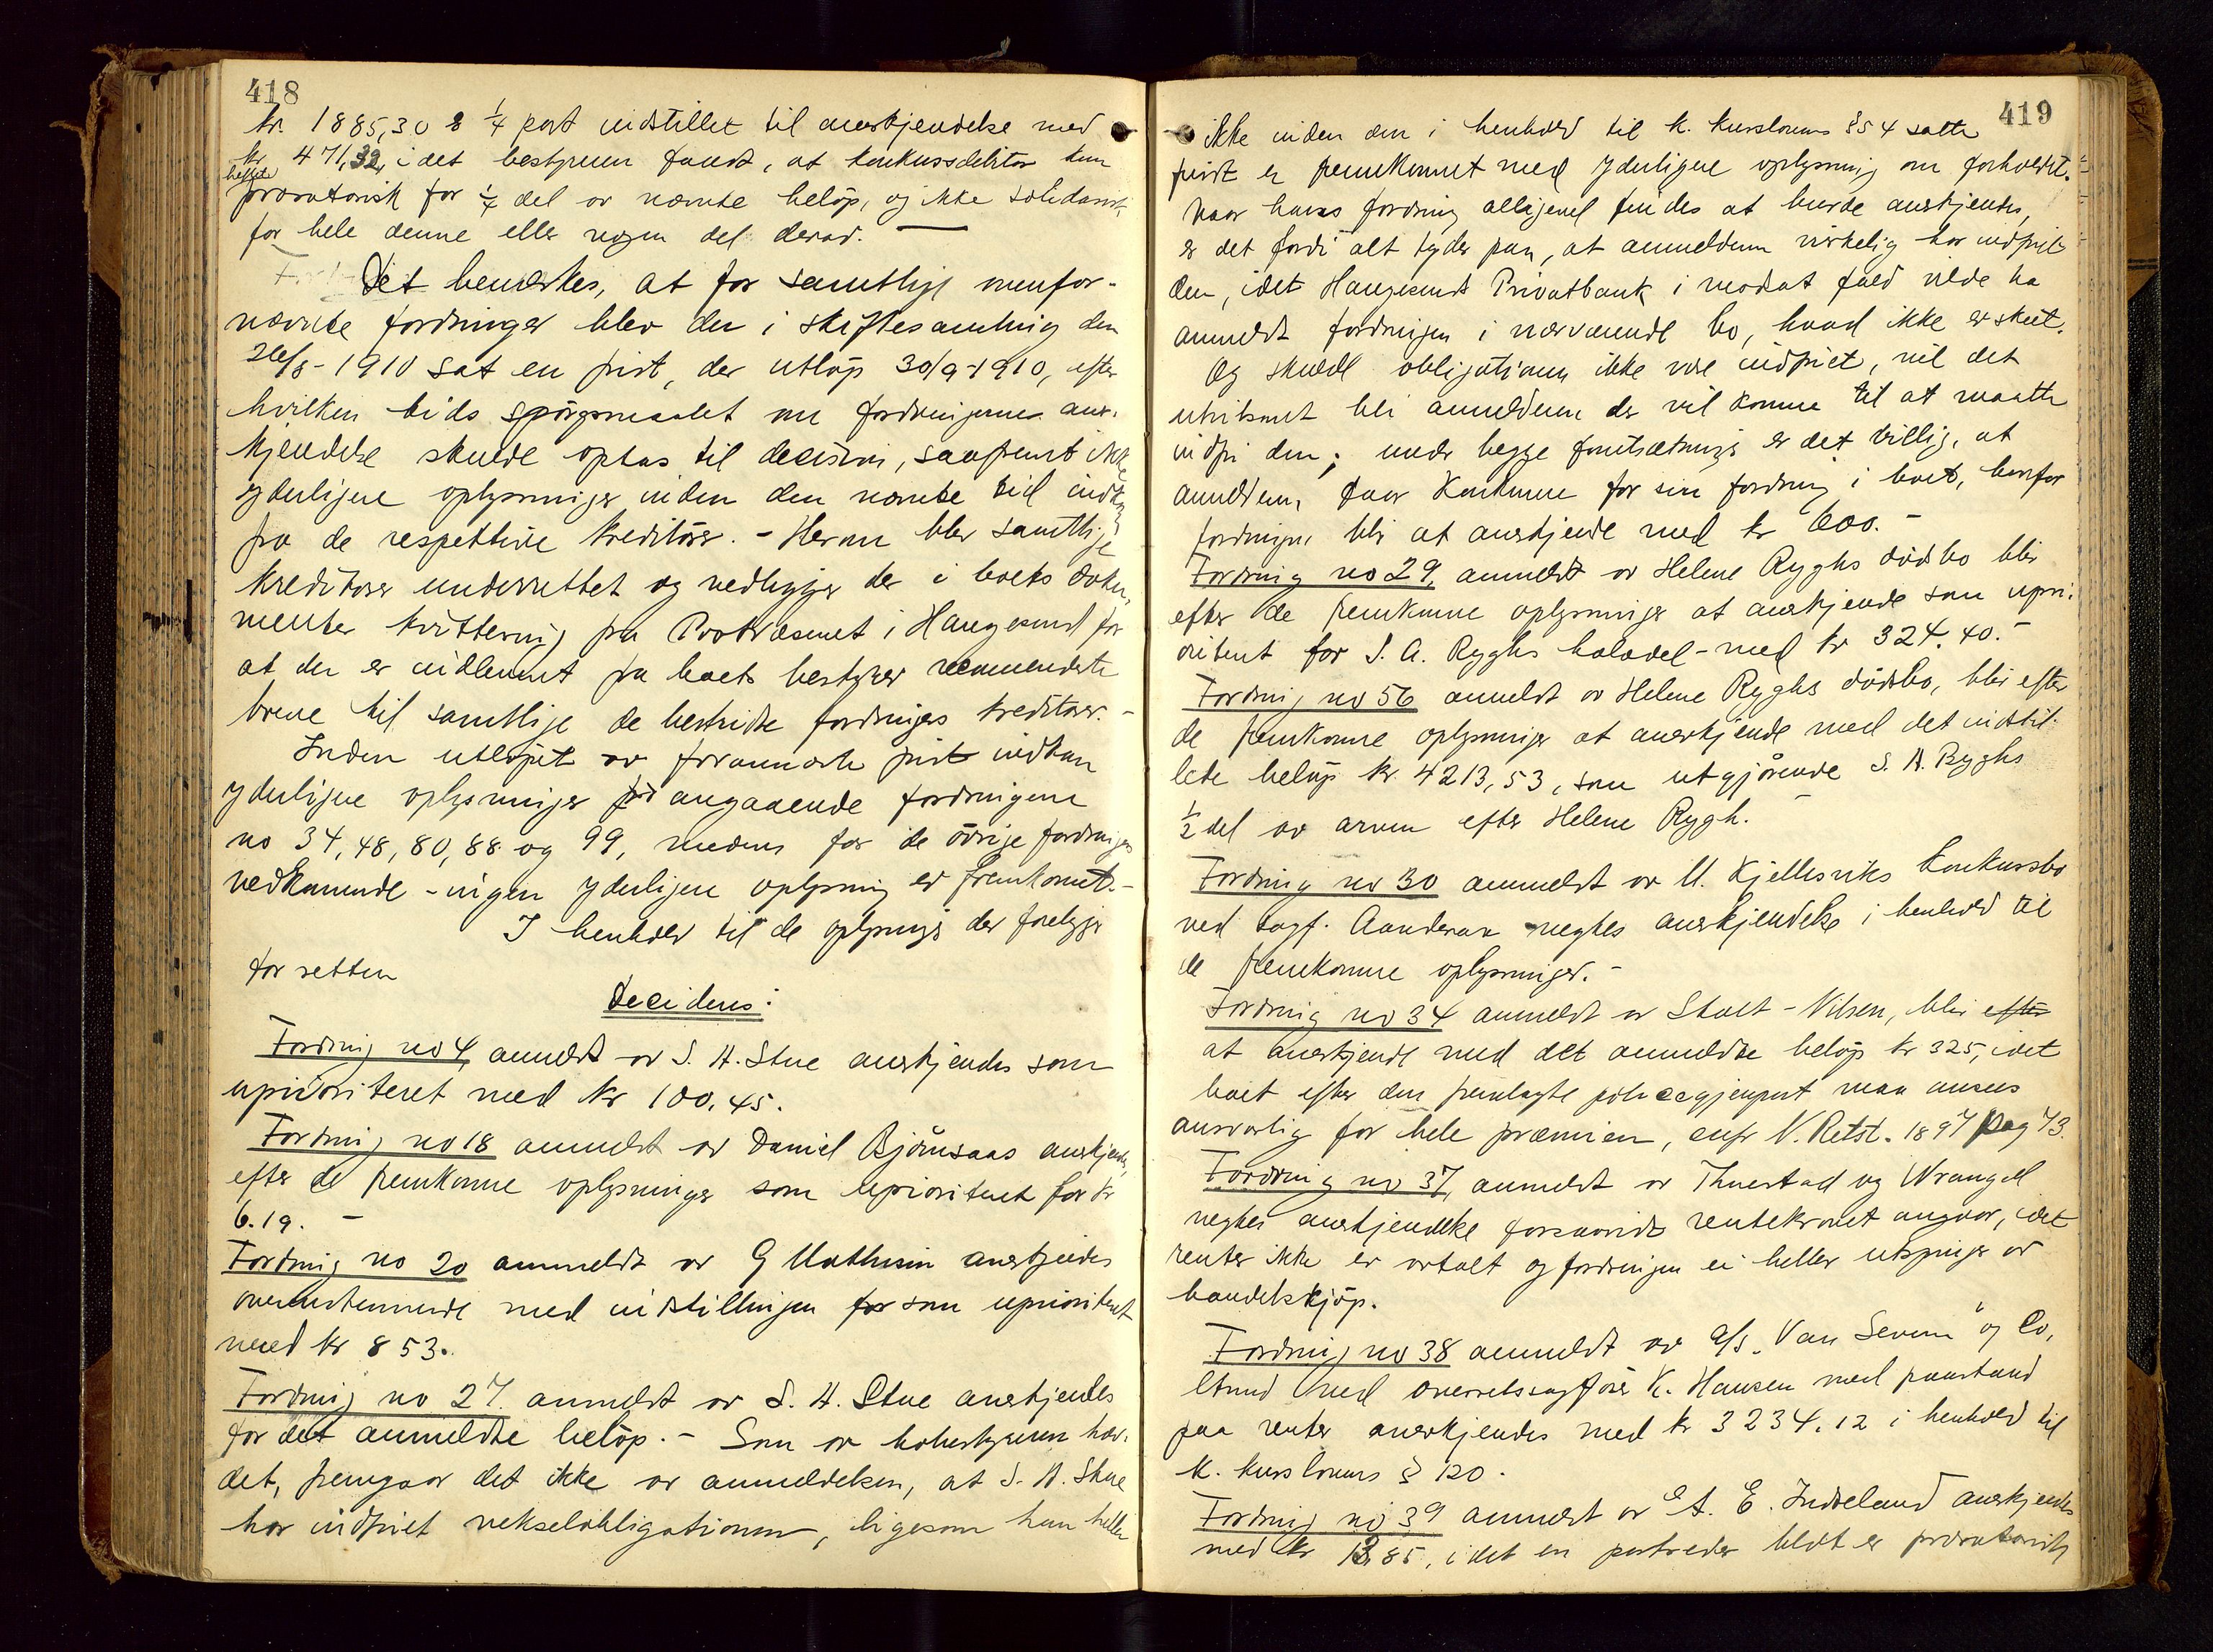 418
kr. 1885,30 & 1/4 part indstillet til anerkjendelse med
kr 471,32, idet bestyreren fandt, at konkursdebitor kun
heftet
proratarisk for 1/4 del av nævnte beløp, og ikke solidarisk
for hele denne eller nogen del derav. —
Det bemerkes, at for samtlige ovenfor-
nævnte fordringer blev der i skiftesamling den
26/8-1910 sat en frist, der utløp 30/9-1910, efter
hvilken tids spørgsmaalet om fordringernes aner-
kjendelse skulde optas til decision, saafremt ikke
yderligere oplysninger inden den nævnte tid indkom
fra de respektive kreditorer. - Herom blev samtlige
kreditorer underrettet og vedligger der i boets doku-
menter kvittering fra Postvæsenet i Haugesund for
at der er indlevert fra boets bestyrer recomenderte
breve til samtlige de bestridte fordringers kreditorer. -
Inden utløpet av forannævnte frist indkom
yderligere oplysninger angaaende fordringene
no 34, 48, 80, 88 og 99, medens for de øvrige fordringers
vedkommende - ingen yderligere oplysning er fremkommet. -
I henhold til de oplysninger der foreligger
for retten
Decideres:
Fordring no 4, anmeldt av S. A. Stue anerkjendes som
uprioriteret med kr 100.45.
Fordring no 18 anmeldt av Daniel Bjørnsaas anerkjendes
efter de fremkomne oplysninger som uprioritert for kr
6.19. —
Fordring no 20 anmeldt av G Mathisen anerkjendes
overensstemmende med indstillingen for som uprioritert
med kr 853.
Fordring no 27. anmeldt av S. A. Stue anerkjendes
for det anmeldte beløp. - Som av bobestyreren hæv-
det, fremgaar det ikke av anmeldelsen, at S. A. Stue
har indfriet vekselobligationen, ligesom han heller
419
ikke inden den i henhold til K. kurslovens §54 satte
frist er fremkommet med yderligere oplysning om forholdet.
Naar hans fordring alligevel findes at burde anerkjendes,
er det fordi alt tyder paa, at anmelderen virkelig har indfriet
den, idet Haugesunds Privatbank i modsat fald vilde ha
anmeldt fordringen i nærværende bo, hvad ikke er skeet.
Og skulde obligationen ikke være indfriet, vil det
utvilsomt bli anmelderen der vil komme til at maatte
indfri den; under begge forutsætninger er det billig, at
anmelderen faar konkurere for sin fordring i boet, hvorfor
fordringen blir at anerkjende med kr 600. -
Fordring no 29, anmeldt av Helene Ryghs dødsbo blir
efter de fremkomne oplysninger at anerkjende som upri-
oritert for S. A. Ryghs halvdel - med kr 324.40. -
Fordring no 56 anmeldt av Helene Ryghs dødsbo, blir efter
de fremkomne oplysninger at anerkjende med det indstil-
lete beløp kr. 4213,53, som utgjørende S. A. Ryghs
1/2 del av arven efter Helene Rygh. -
Fordring no 30 anmeldt av M. Kjellesviks konkursbo
ved sagf. Aanderaa negtes anerkjendelse i henhold til
de fremkomne oplysninger. -
Fordring no 34 anmeldt av Stolt-Nilsen, blir efter
at anerkjende med det anmeldte beløp kr 325, idet
boet efter den fremlagte policegjenpart maa ansees
ansvarlig for hele præmien, cnfr N. Retst. 1897 pag 73.
Fordring no 37, anmeldt av Thuestad og Wrangell
negtes anerkjendelse forsaavidt rentekravet angaar, idet
renter ikke er avtalt og fordringen ei heller utspringer av
handelskjøp.
Fordring no 38 anmeldt av A/S „Van Severen" og Co,
Strand ved overretssagfører K. Hansen med paastand
paa renter anerkjendes med kr 3234.12 i henhold til
K. kurslovens § 120.
Fordring no 39 anmeldt av A. E. Indreland anerkjendes
med kr 13,85, idet en partreder blot er proratarisk